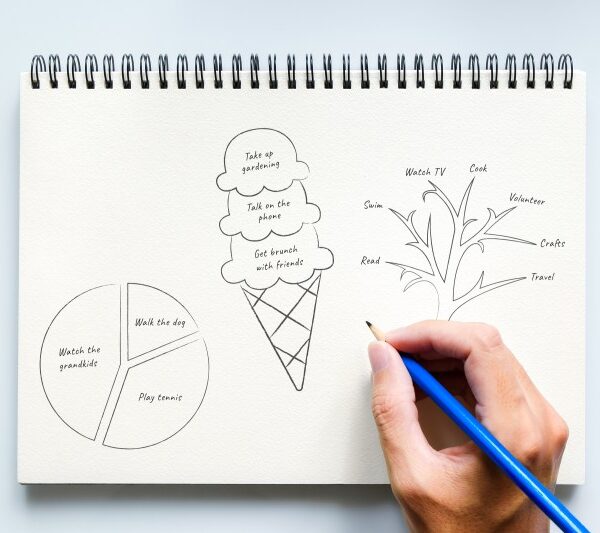 Take up
gardening
Talk on the
phone
Get brunch
with friends
Watch TV
Cook
Swim
Volunteer
Crafts
Read
Travel
Walk the dog
Watch the
grandkids
Play tennis